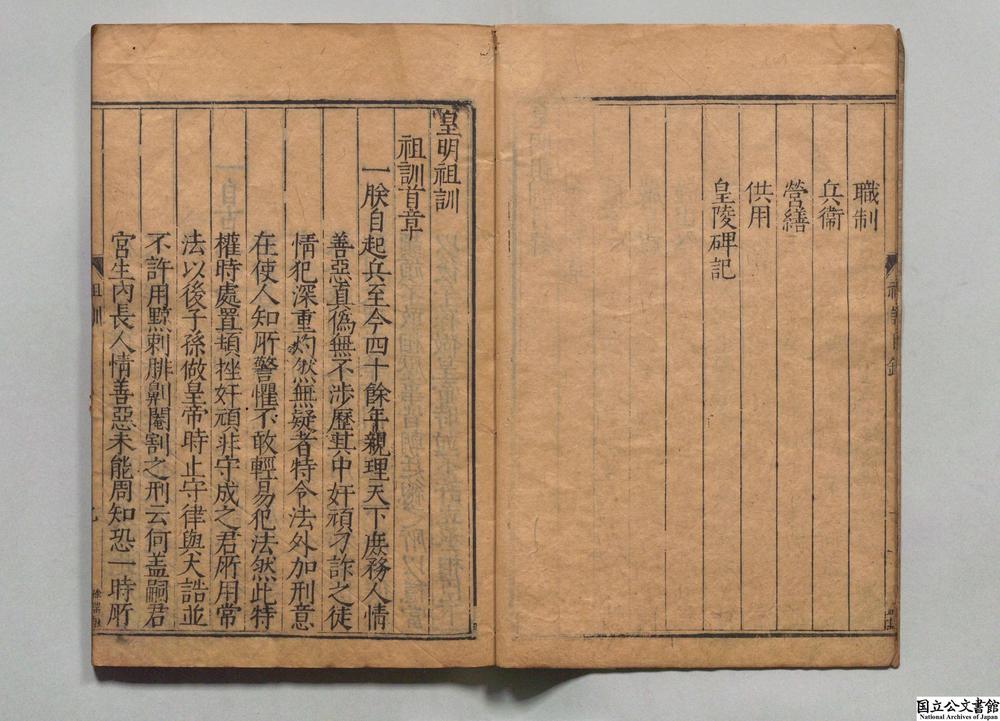 職制
兵衞
營繕
供用
皇陵碑記
皇明祖訓
祖訓首章
一朕自起兵至今四十餘年親理天下庶務人情
善惡真僞無不涉歷其中奸頑刁詐之徒
情犯深重灼然無疑者特令法外加刑意
在使人知所警懼不敢輕易犯法然此特
權時處置頓挫奸頑非守成之君所用常
法以後子孫做皇帝時止守律與大誥並
不許用黥刺腓劓閹割之刑云何盖嗣君
宮生內長人情善惡未能周知恐一時所
祖訓
国立公文書館
National Archives of Japan